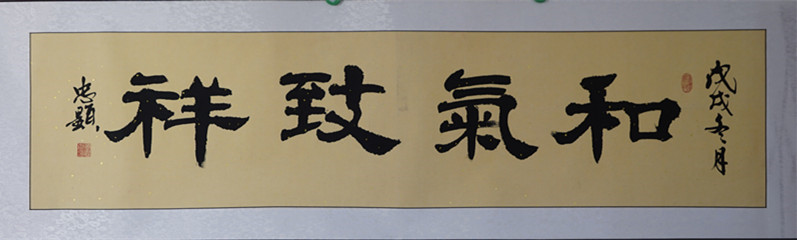 戊戌冬月
和氣致祥
忠顯